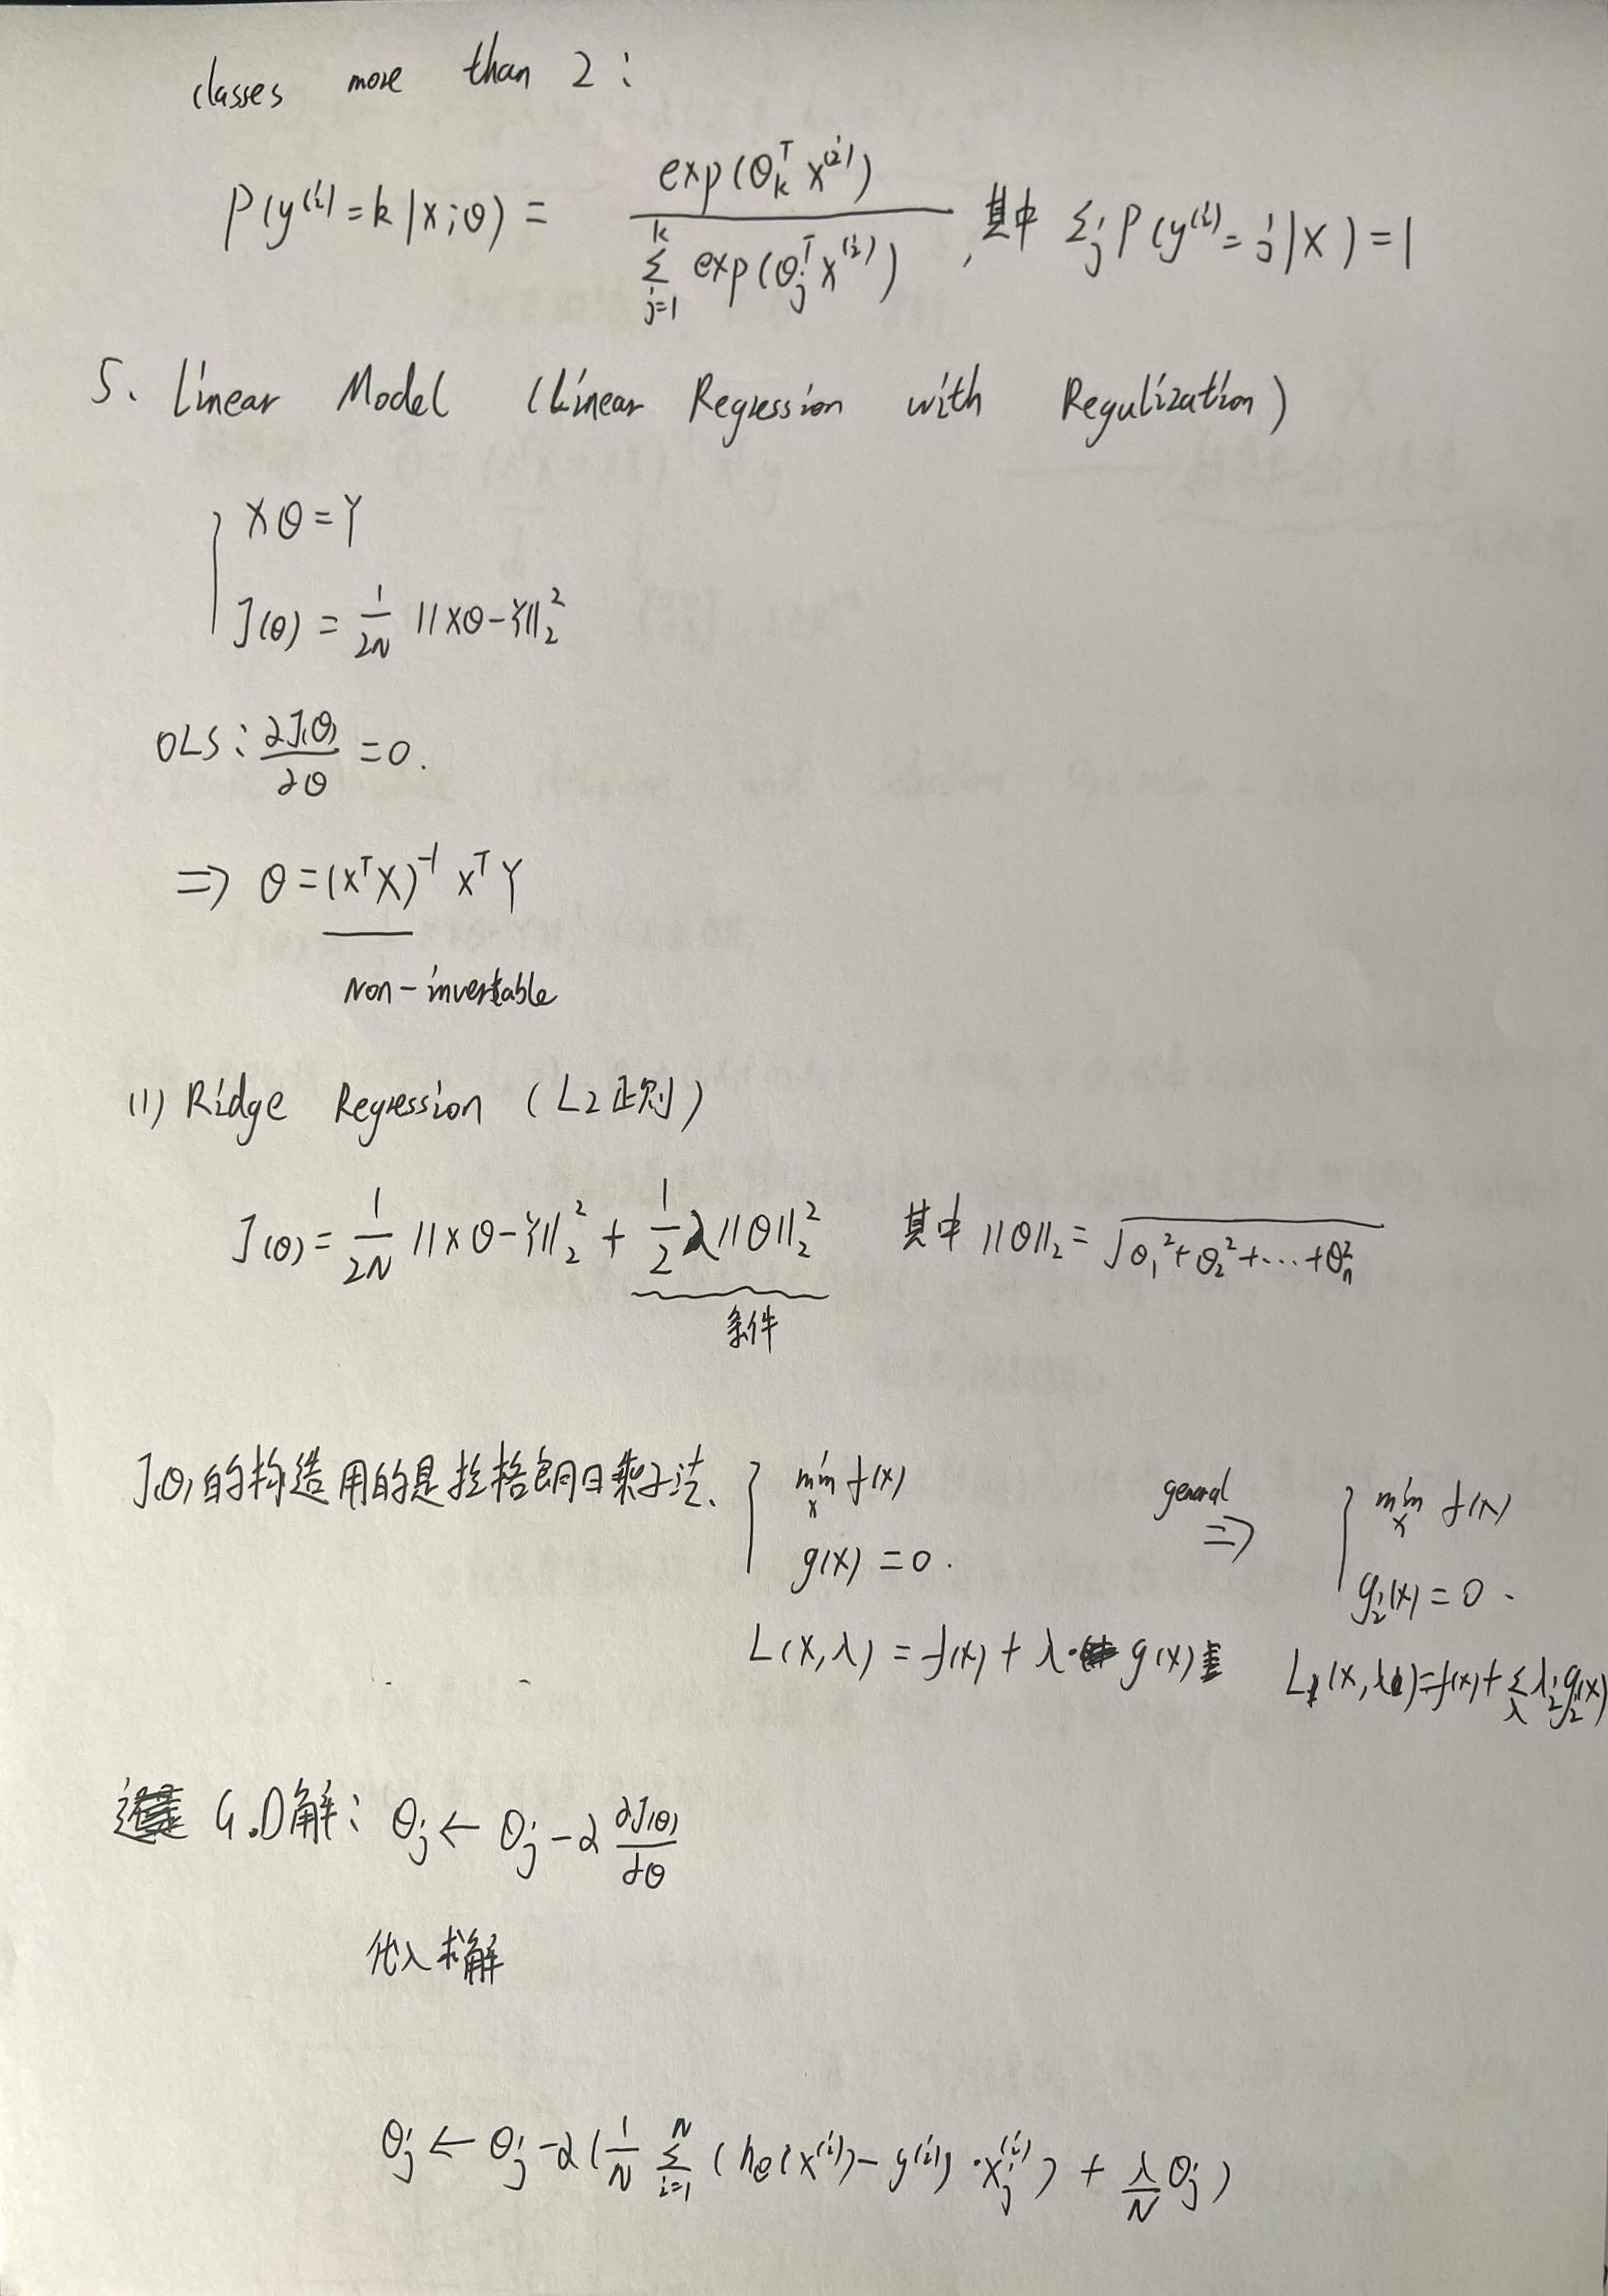 classes more than 2:
P(y^(i)=k|x;θ) = exp(θ_k^T x^(i)) / Σ_{j=1}^{k} exp(θ_j^T x^(i)) , 其中 Σ_j P(y^(i)=j|x)=1
5. Linear Model (Linear Regression with Regulization)
Xθ=Y
J(θ) = 1/2N ||Xθ-Y||_2^2
OLS: ∂J(θ)/∂θ =0.
⇒ θ=(X^T X)^-1 X^T Y
Non-invertable
(1) Ridge Regression (L2正则)
J(θ) = 1/2N ||Xθ-Y||_2^2 + 1/2 λ||θ||_2^2 其中 ||θ||_2 = √(θ_1^2+θ_2^2+...+θ_n^2)
条件
J(θ)的构造用的是拉格朗日乘子法、 min_x f(x) general ⇒ min_x f(x)
g(x) =0. g_i(x) =0.
L(x,λ) = f(x) + λ· g(x) L(x,λ)=f(x)+Σ_λ λ_i g_i(x)
G.D解: θ_j ← θ_j - α ∂J(θ)/∂θ
代入求解
θ_j ← θ_j -α (1/N Σ_{i=1}^{N} (h_θ(x^(i))-y^(i)) ·x_j^(i)) + λ/N θ_j)